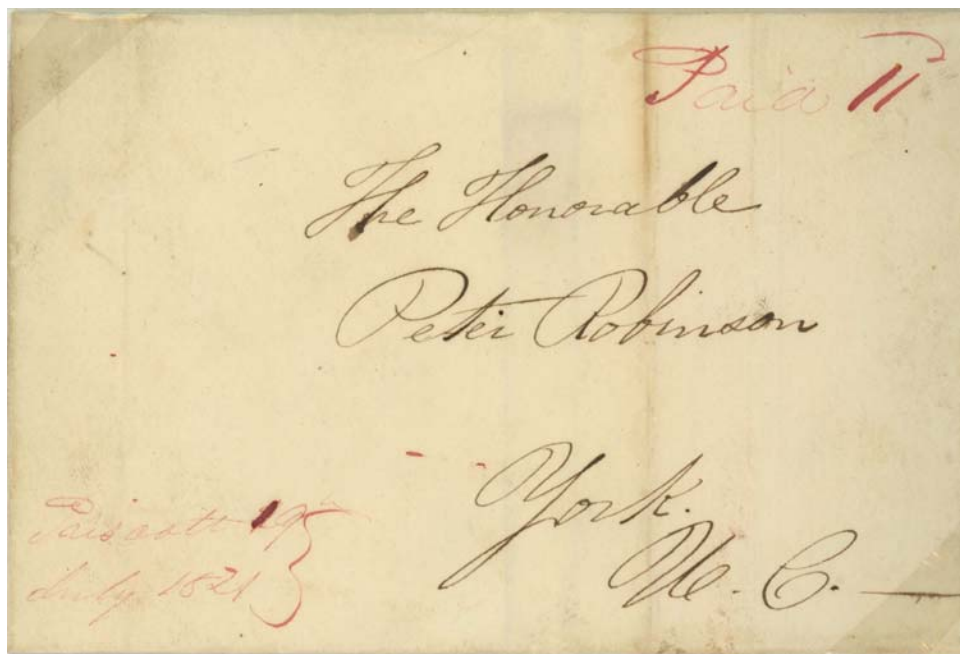 Paid 11
The Honorable
Peter Robinson
York.
U. C.
Prescott 19th
July